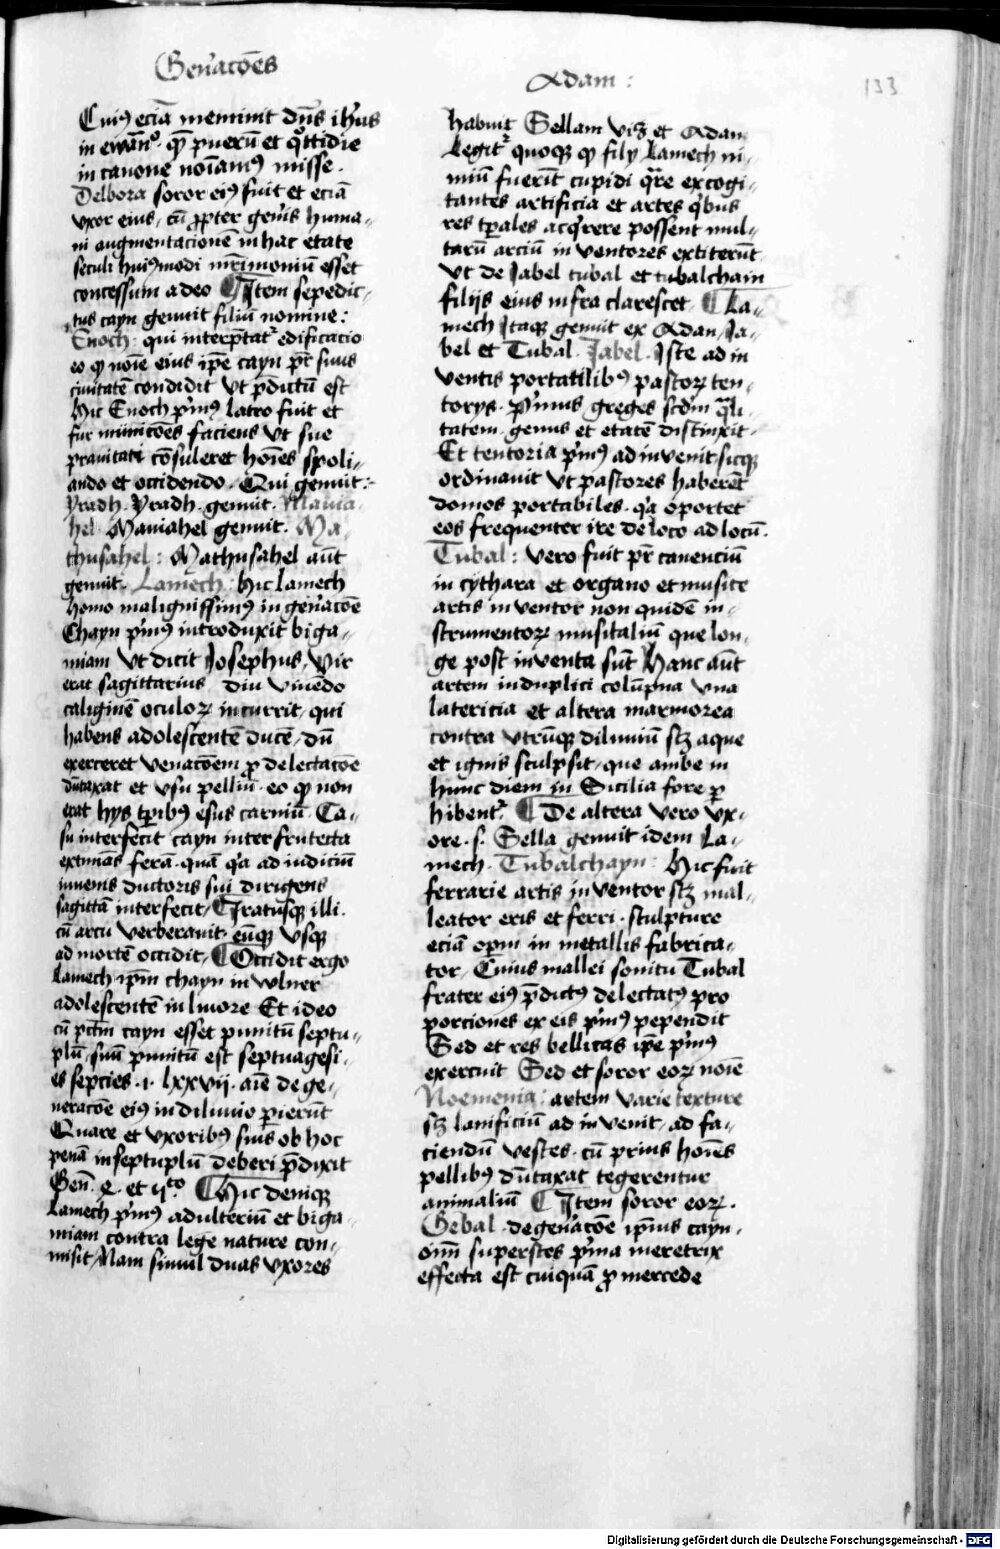 Gen̄acōes
Adam :
133
Cuiꝰ eciā meminit dn̄s ihꝰus
in ewān°. qꝫ puerū et qͦttidie
in canone noīamꝰ misse.
Delbora soror eiꝰ fuit et eciā
vxor eius, cū ꝓpter gen̄is huma-
ni augmentacionē in hac etate
seculi huiꝰmodi mr̄imoniū esset
concessum adeo ¶ Item sepedic-
tus cayn genuit filiū nomine:
Enoch: qui interp̄tatr edificacio
eo qꝫ noīe eius ip̄e cayn pr̄ suus
ciuitatē condidit vt p̄dictū est
Hic Enoch p'mꝰ latro fuit et
fur municōes faciens vt sue
prauitati cōsuleret hoīes spoli-
ando et occidendo. Qui genuit:
Yradh. Yradh. genuit. Mauia-
hel. Mauiahel genuit. Ma-
thusahel: Mathusahel aūt
genuit. Lamech: hic lamech
homo malignissimꝰ in gen̄acōe
Chayn p'mꝰ introduxit biga-
miam vt dicit Josephus, Vir
erat sagittarius diu viuēdo
caliginē oculoꝝ incurrit, qui
habens adolescentē ducē, dū
exerceret venacōem ꝓ delectacōe
dūtaxat et vsu pelliū. eo qꝫ non
erat hys tp̄ribꝰ esus carniū. Ca-
su interfecit cayn inter frutecta
extimās fera. quā qa ad iudiciū
iuuenis ductoris sui dirigens
sagittā interfecit, ¶ Iratusqꝫ illi.
cū arcu verberauit. eūqꝫ vsqꝫ
ad mortē occidit, ¶ Occidit ergo
Lamech ip̄m chayn in vulner
adolescentē in liuore Et ideo
cū pctm̄ cayn esset punitū septu-
plū, suū punitū est septuagesi-
es septies. i. lxxvij. aīe de ge-
neracōe eiꝰ in diluuio perierūt
Quare et vxoribꝰ suis ob hoc
penā inseptuplū deberi p̄dixit
Gen̄. q. et ijto. ¶ Hic deniqꝫ
Lamech p'mꝰ adulteriū et biga-
miam contra lege nature con-
misit, Nam simul duas vxores
habuit Sellam viꝫ et Adam
Legitr quoqꝫ qꝫ filij Lamech ni-
miū fuerūt cupidi qr̄e excogi-
tantes artificia et artes q'bus
res tp̄ales acq'rere possent mul-
tarū arciū inventores extiterūt
vt de Jabel tubal et tubalchain
filijs eius infra clarescet. ¶ La-
mech Itaqꝫ genuit ex Adan, Ja-
bel et Tubal. Jabel. Iste ad in
ventis portatilibꝰ pastoꝝ ten-
torys. p'mus greges scd̄m q̄li-
tatem. genus et etatē distinxit.
Et tentoria p'mꝰ adinvenit sicqꝫ
ordinauit vt pastores haberēt
domos portabiles. qa oportet
eos frequenter ire de loco ad locū.
Tubal: vero fuit pr̄ canenciū
in cythara et organo et musice
artis inventor non quidē in-
strumentoꝝ musitaliū que lon-
ge post inventa sūt hanc aūt
artem induplici colūpna vna
latericia et altera marmorea
contra vtrūqꝫ diluuiū scꝫ aque
et ignis sculpsit, que ambe in
hunc diem in Sicilia fore p
hibentr. ¶ De altera vero vx-
ore. s. Sella genuit idem La-
mech. Tubalchayn: Hic fuit
ferrarie artis inventor scꝫ mal-
leator eris et ferri. sculpture
eciā operū in metallis fabrica-
tor, Cuius mallei sonitu Tubal
frater eiꝰ p̄dictꝰ delectatꝰ pro
porciones ex eis p'mꝰ pependit
Sed et res bellicas ip̄e p'mꝰ
exercuit Sed et soror eoꝝ noīe
Noemenia: artem varie texture
scꝫ lanificiū ad invenit, ad fa-
ciendū vestes. cū prius hoīes
pellibꝰ dūtaxat tegerentur
animaliū ¶ Item soror eoꝝ.
Gebal. de gen̄acōe ip̄ius cayn.
oīm superstes p'ma meretrix
effecta est cuiquā ꝓ mercede
Digitalisierung gefördert durch die Deutsche Forschungsgemeinschaft - DFG